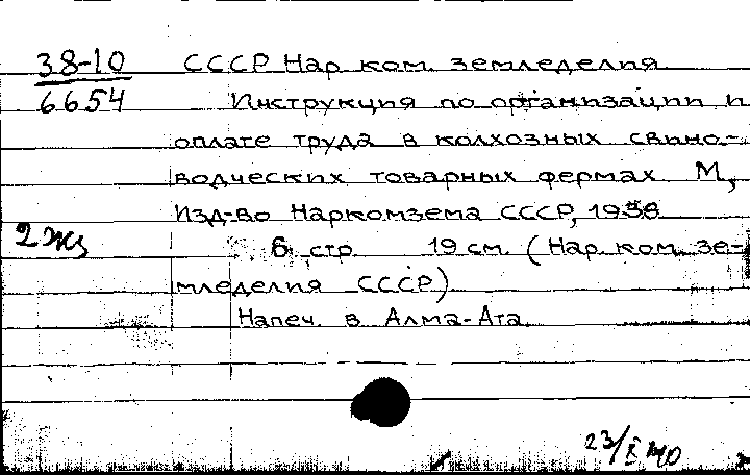 38-10 СССР Нар ком. земледелия
6654 Инструкция по организации и
оплате труда в колхозных свино-
водческих товарных фермах М,
Изд-во Наркомзема СССР, 1938
2жц 6 стр 19 см. (Нар. ком. зе-
мледелия СССР)
Напеч. в Алма-Ата
23/X